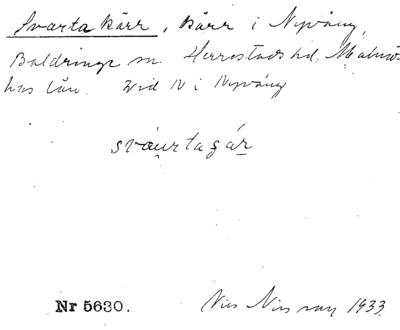 Svarta kärr, kärr i Nyvång,
Baldringe sn. Herrestads hd. Malmö-
hus län. Vid N i Nyvång
svau̯rtagár
Nr 5630. Nils Nilsson 1933.